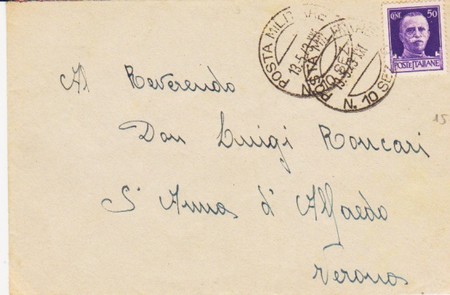 POSTA MILITARE
N. 10 SEZ.
13.5.43.XXI
CENT. 50
POSTE ITALIANE
15
Al Reverendo
Don Luigi Roncari
S. Anna d'Alfaedo
Verona